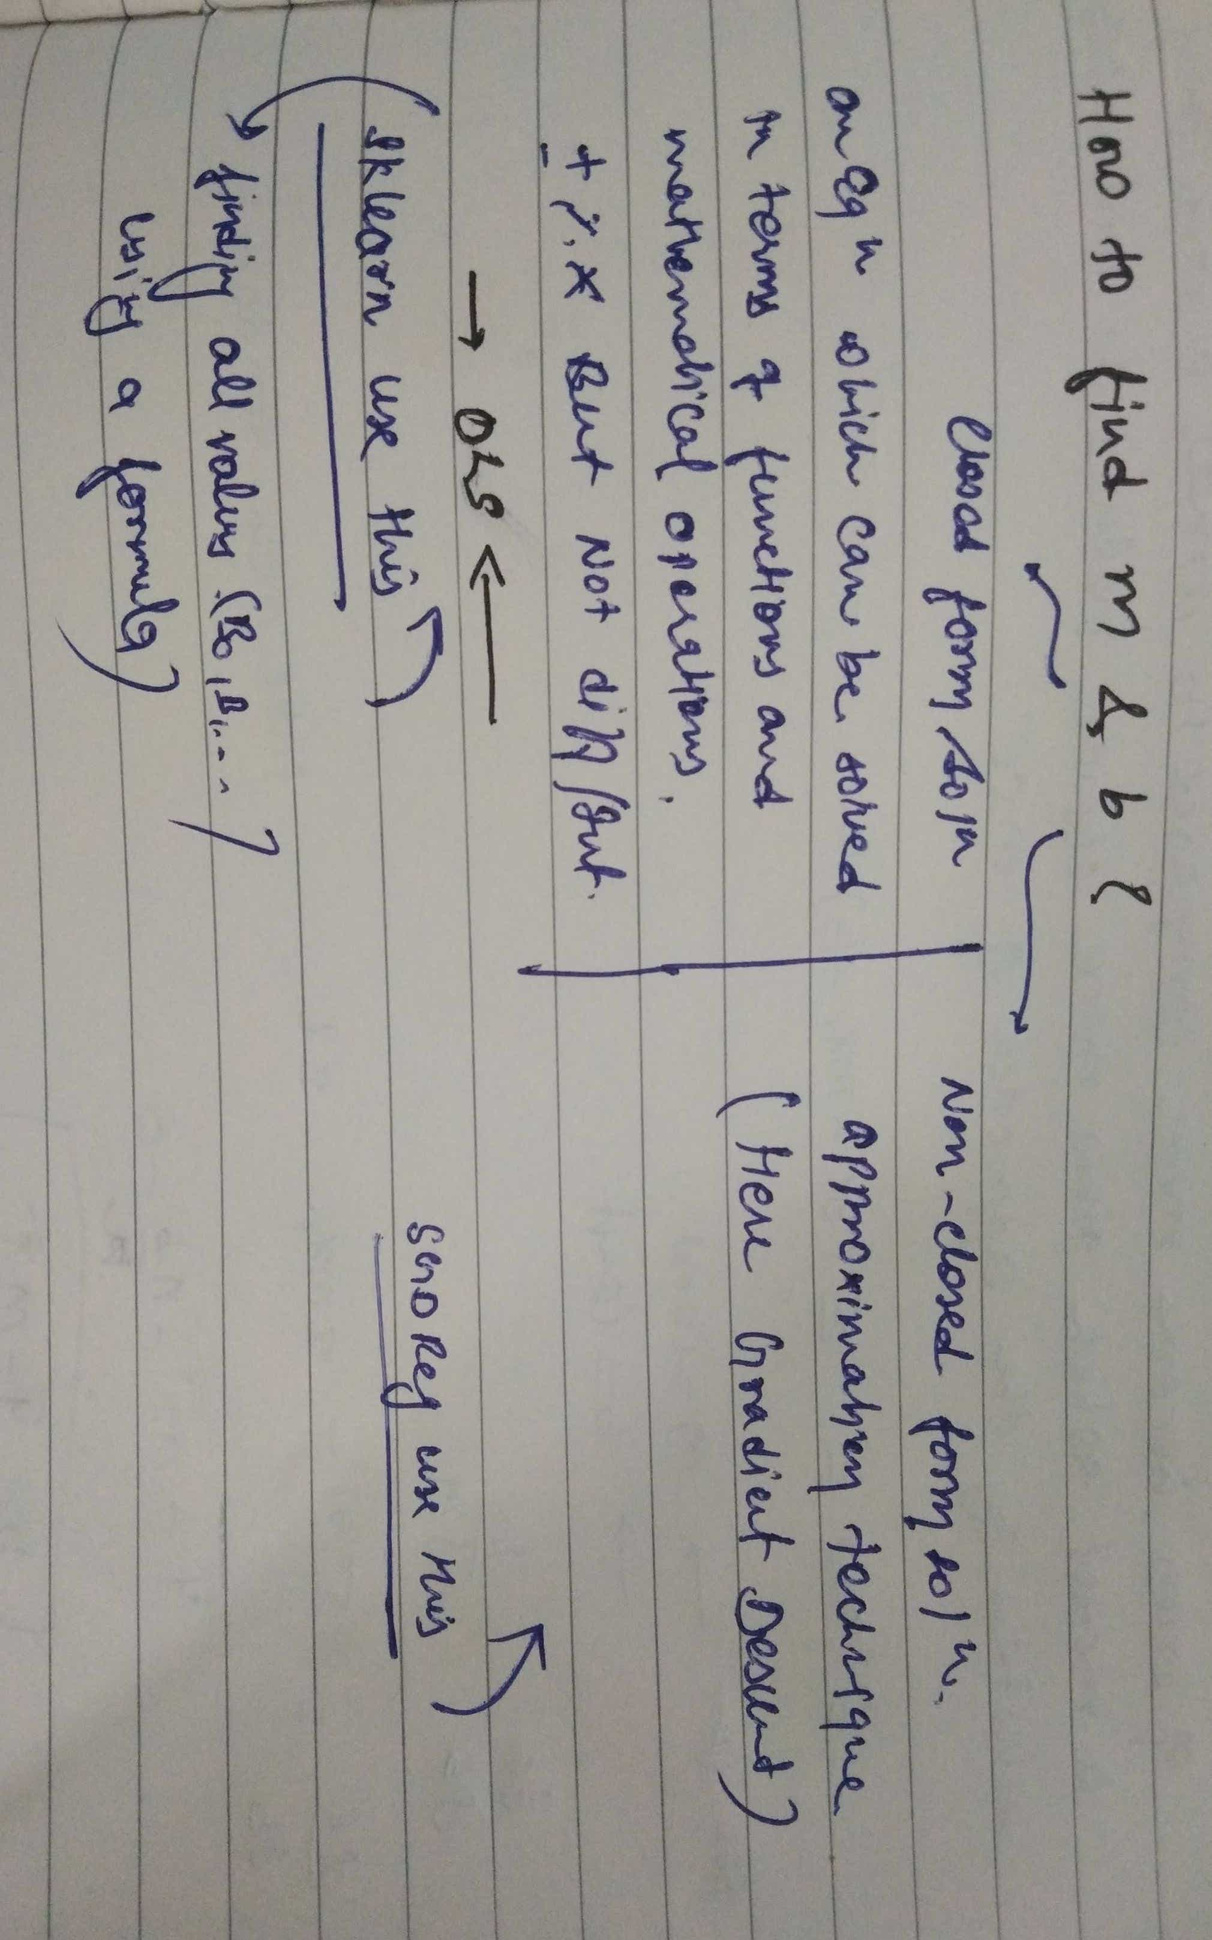 How to find m & b ?
Closed form soln
an eqn which can be solved
in terms of functions and
mathematical operations.
+ - % × But Not diff/Int.
→ OLS ←
Sklearn use this
(→ finding all values (B0, B1, ...)
using a formula)
Non-closed form soln.
approximation technique
(Here Gradient Descent)
SGDReg use this